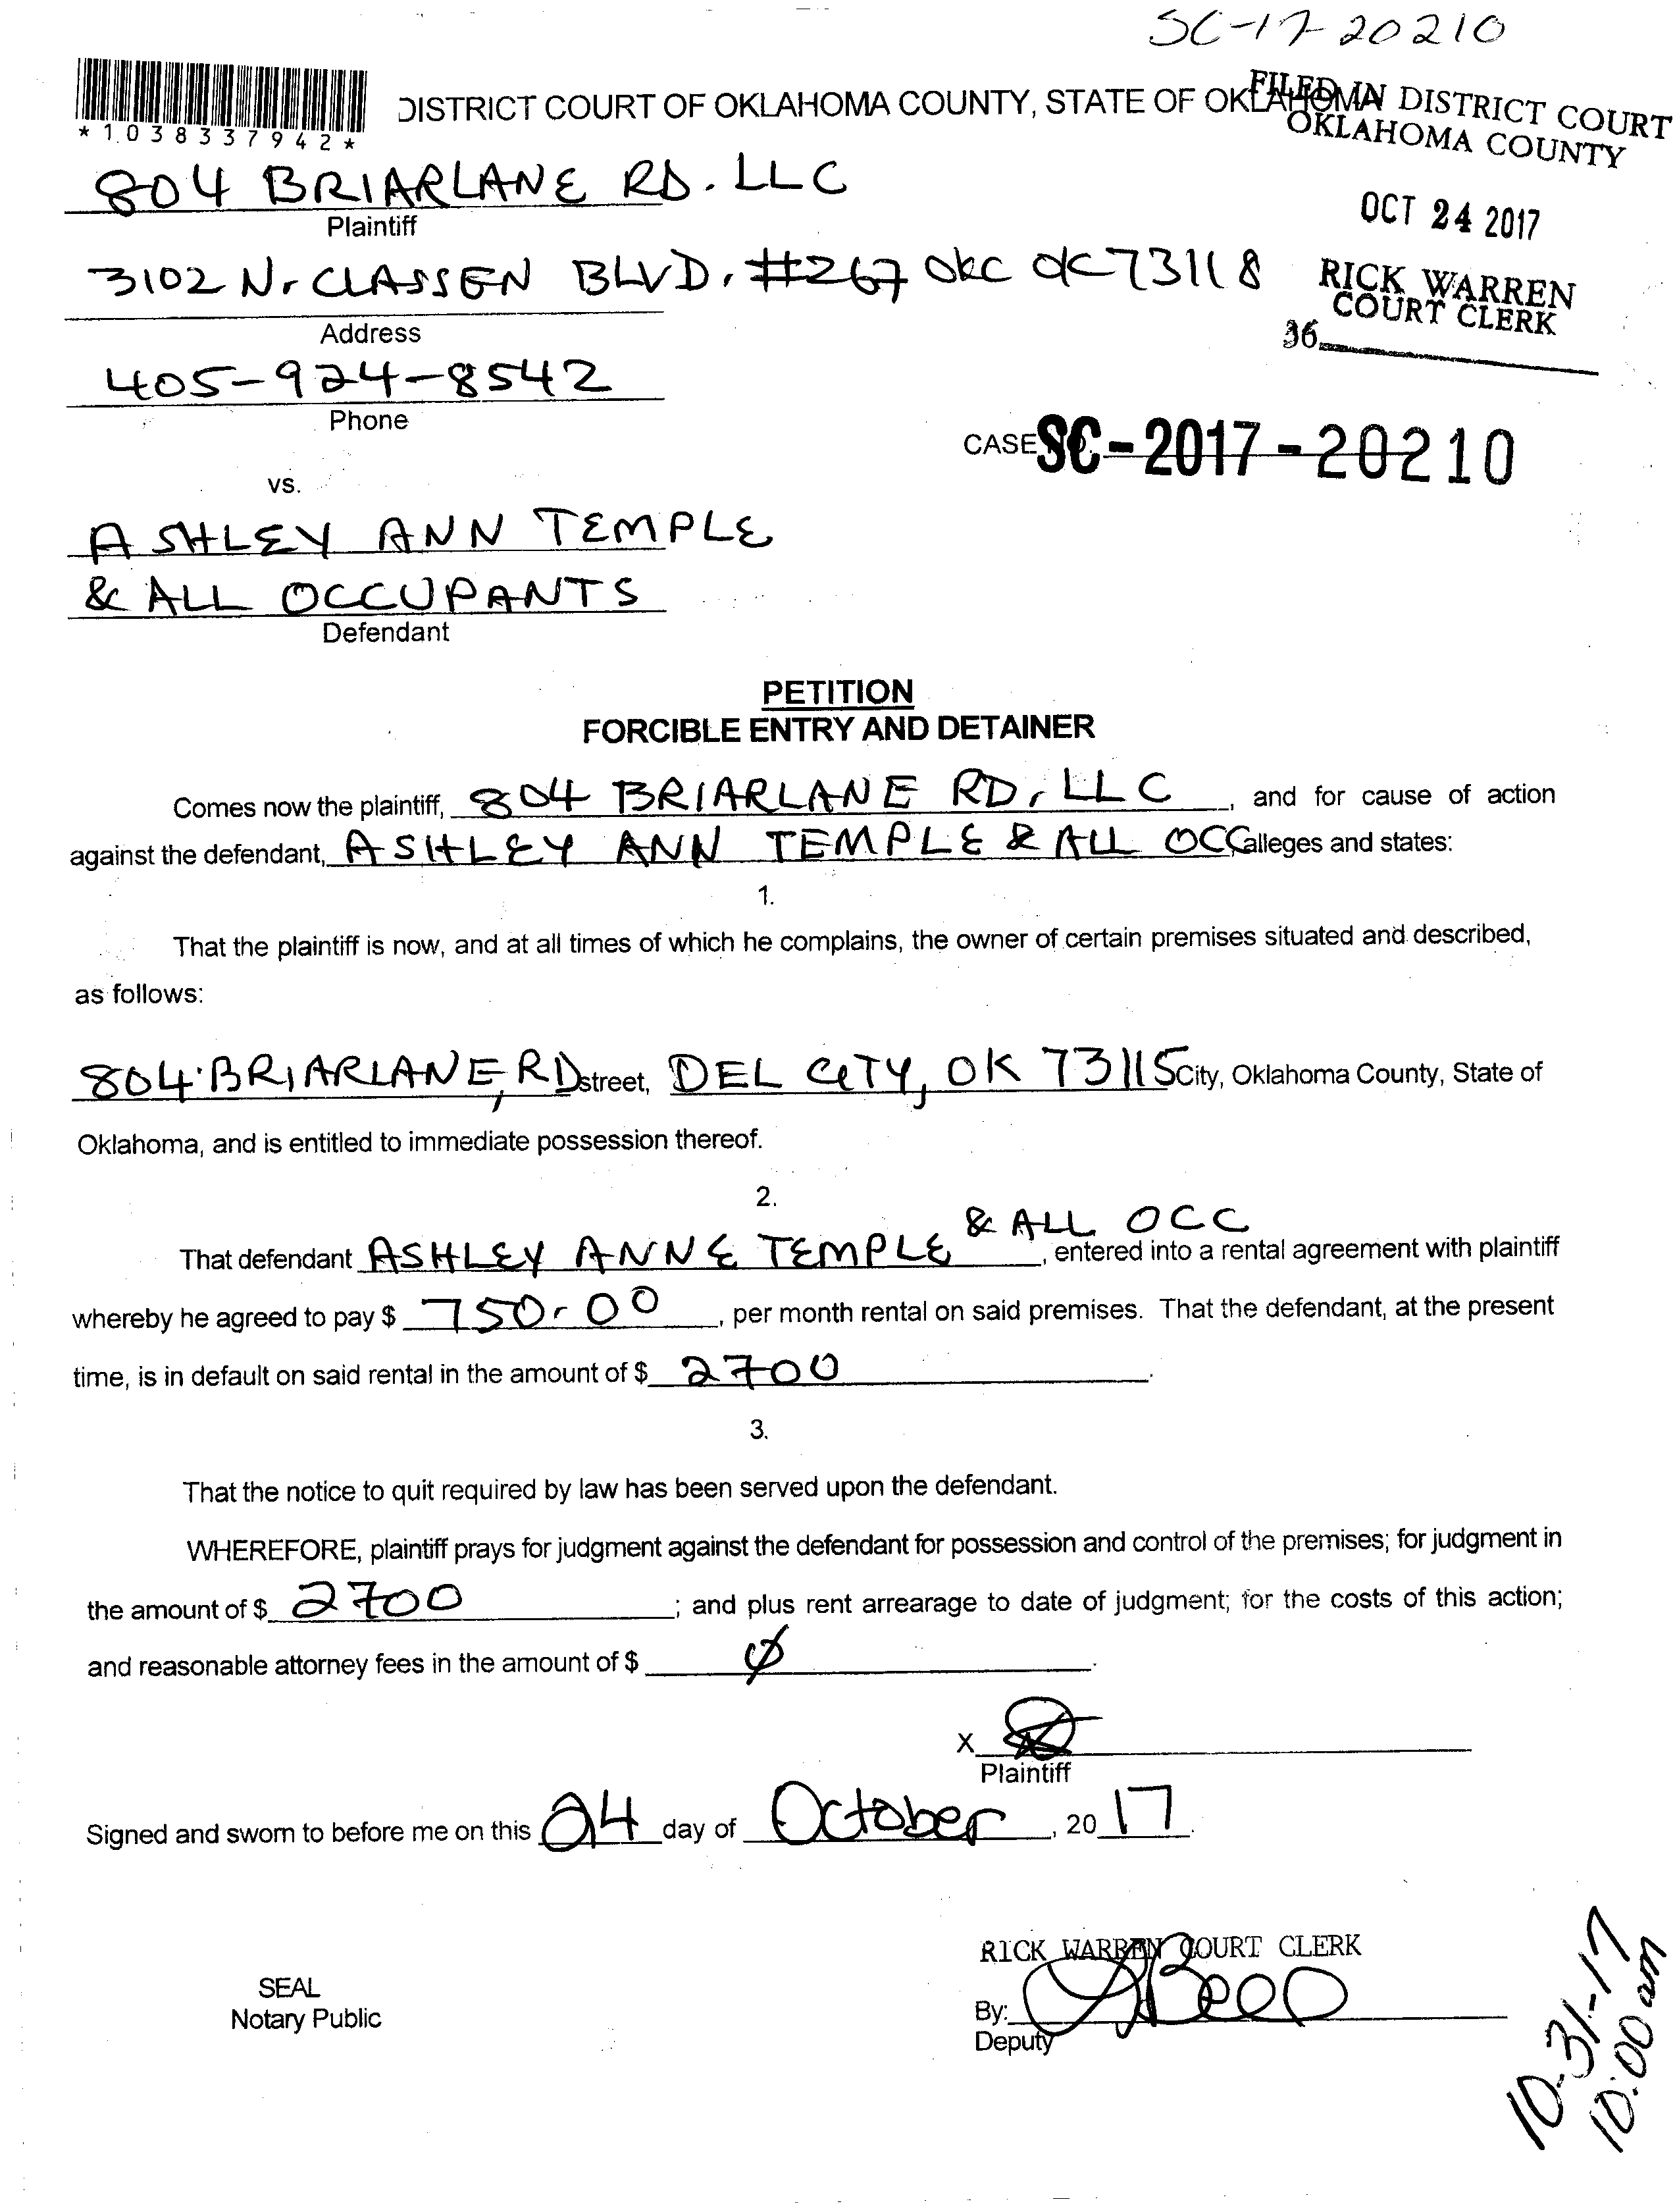 SC-17-20210
DISTRICT COURT OF OKLAHOMA COUNTY, STATE OF OKLAHOMA
FILED IN DISTRICT COURT
OKLAHOMA COUNTY
*1038337942*
804 BRIARLANE RD. LLC
Plaintiff
OCT 24 2017
3102 N. CLASSEN BLVD. #267 OKC OK 73118
RICK WARREN
COURT CLERK
Address
36
405-924-8542
Phone
CASE NO. SC-2017-20210
vs.
ASHLEY ANN TEMPLE
& ALL OCCUPANTS
Defendant
PETITION
FORCIBLE ENTRY AND DETAINER
Comes now the plaintiff, 804 BRIARLANE RD, LLC, and for cause of action
against the defendant, ASHLEY ANN TEMPLE & ALL OCC alleges and states:
1.
That the plaintiff is now, and at all times of which he complains, the owner of certain premises situated and described,
as follows:
804 BRIARLANE, RD street, DEL CITY, OK 73115 City, Oklahoma County, State of
Oklahoma, and is entitled to immediate possession thereof.
2.
& ALL OCC
That defendant ASHLEY ANNE TEMPLE, entered into a rental agreement with plaintiff
whereby he agreed to pay $ 750.00, per month rental on said premises. That the defendant, at the present
time, is in default on said rental in the amount of $ 2700.
3.
That the notice to quit required by law has been served upon the defendant.
WHEREFORE, plaintiff prays for judgment against the defendant for possession and control of the premises; for judgment in
the amount of $ 2700; and plus rent arrearage to date of judgment; for the costs of this action;
and reasonable attorney fees in the amount of $ Ø.
X
Plaintiff
Signed and sworn to before me on this 24 day of October, 2017.
RICK WARREN COURT CLERK
SEAL
Notary Public
By:
Deputy
10-31-17
10:00 am